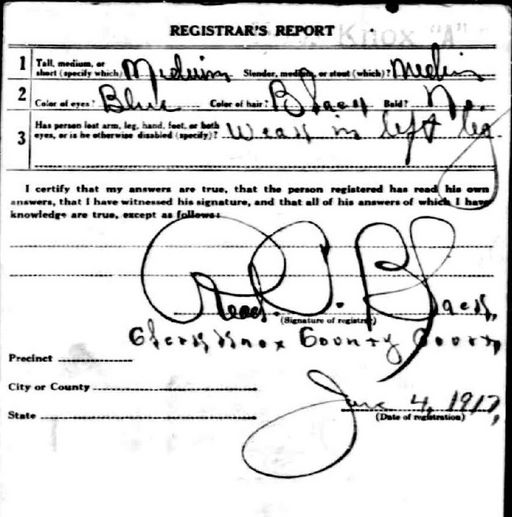 Knox "A"
REGISTRAR'S REPORT
1 Tall, medium, or short (specify which) Medium Slender, medium, or stout (which)? Medium
2 Color of eyes? Blue Color of hair? Black Bald? No.
3 Has person lost arm, leg, hand, foot, or both eyes, or is he otherwise disabled (specify)? Weak in left leg.
I certify that my answers are true, that the person registered has read his own
answers, that I have witnessed his signature, and that all of his answers of which I have
knowledge are true, except as follows:
Read. C. Black,
(Signature of registrar)
Clerk Knox County Court,
Precinct
City or County
State
June 4, 1917,
(Date of registration)